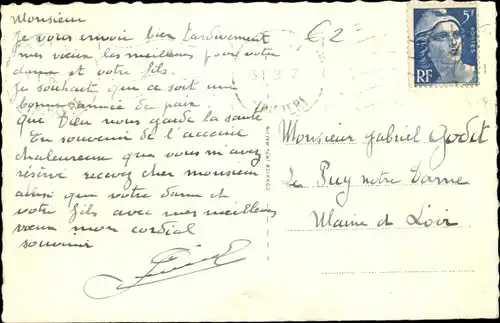 Monsieur
je vous envoi bien tardivement
mes vœux les meilleurs pour votre
dame et votre fils.
je souhaite que ce soit une
bonne année de paix.
que Dieu nous garde la santé
En souvenir de l'accueil
chaleureux que vous m'avez
réservé recevez cher monsieur
ainsi que votre dame et
votre fils avec mes meilleurs
vœux mon cordial
souvenir
€ 2
5F
POSTES
RF
Monsieur gabriel Godet
Le Puy notre Dame
Maine et Loir